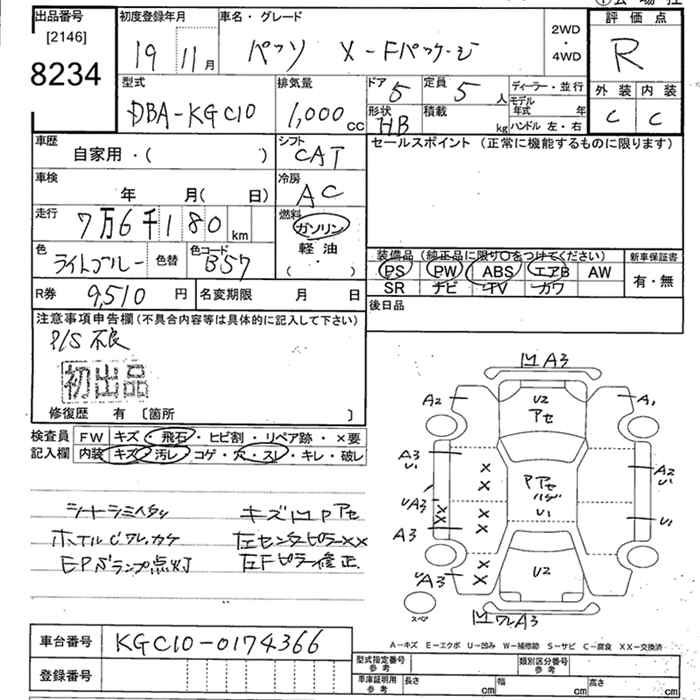 出品番号
[2146]
8234
初度登録年月
19 11月
車名・グレード
パッソ X-Fパッケージ
2WD
・
4WD
評価点
R
外装 内装
C C
型式
DBA-KGC10
排気量
1,000cc
ドア 5
定員 5人
形状 HB
積載 kg
ディーラー・並行
モデル年式 年
ハンドル 左・右
車歴
自家用・( )
シフト
CAT
セールスポイント(正常に機能するものに限ります)
車検
年 月( 日)
冷房
AC
走行
7万6千180km
燃料
ガソリン
軽油
( ・ )
色
ライトブルー
色替
色コード
B57
装備品(純正品に限り○をつけてください)
PS PW ABS エアB AW
SR ナビ TV カワ
新車保証書
有・無
R券 9,510円
名変期限 月 日
後日品
注意事項申告欄(不具合内容等は具体的に記入して下さい)
P/S 不良
初出品
修復歴 有〔箇所 〕
検査員記入欄
FW キズ・飛石・ヒビ割・リペア跡・×要
内装 キズ・汚レ・コゲ・穴・スレ・キレ・破レ
ホイルCワレ,カケ
EPSランプ点灯
キズ凹Pアセ
左センタピラ××
左Fピラー修正.
凹A3
A2
U2
アセ
A1
A3
U1
×
×
Pアセ
ハゲ
U1
A2
U1
UA3
×
×
×
×
A3
U1
UA3
×
×
U2
スペア
凹ワレA3
A-キズ E-エクボ U-凹み W-補修跡 S-サビ C-腐食 XX-交換済
車台番号 KGC10-0174366
登録番号
型式指定番号
参考
類別区分番号
参考
車庫証明用
参考
長さ cm
幅 cm
高さ cm